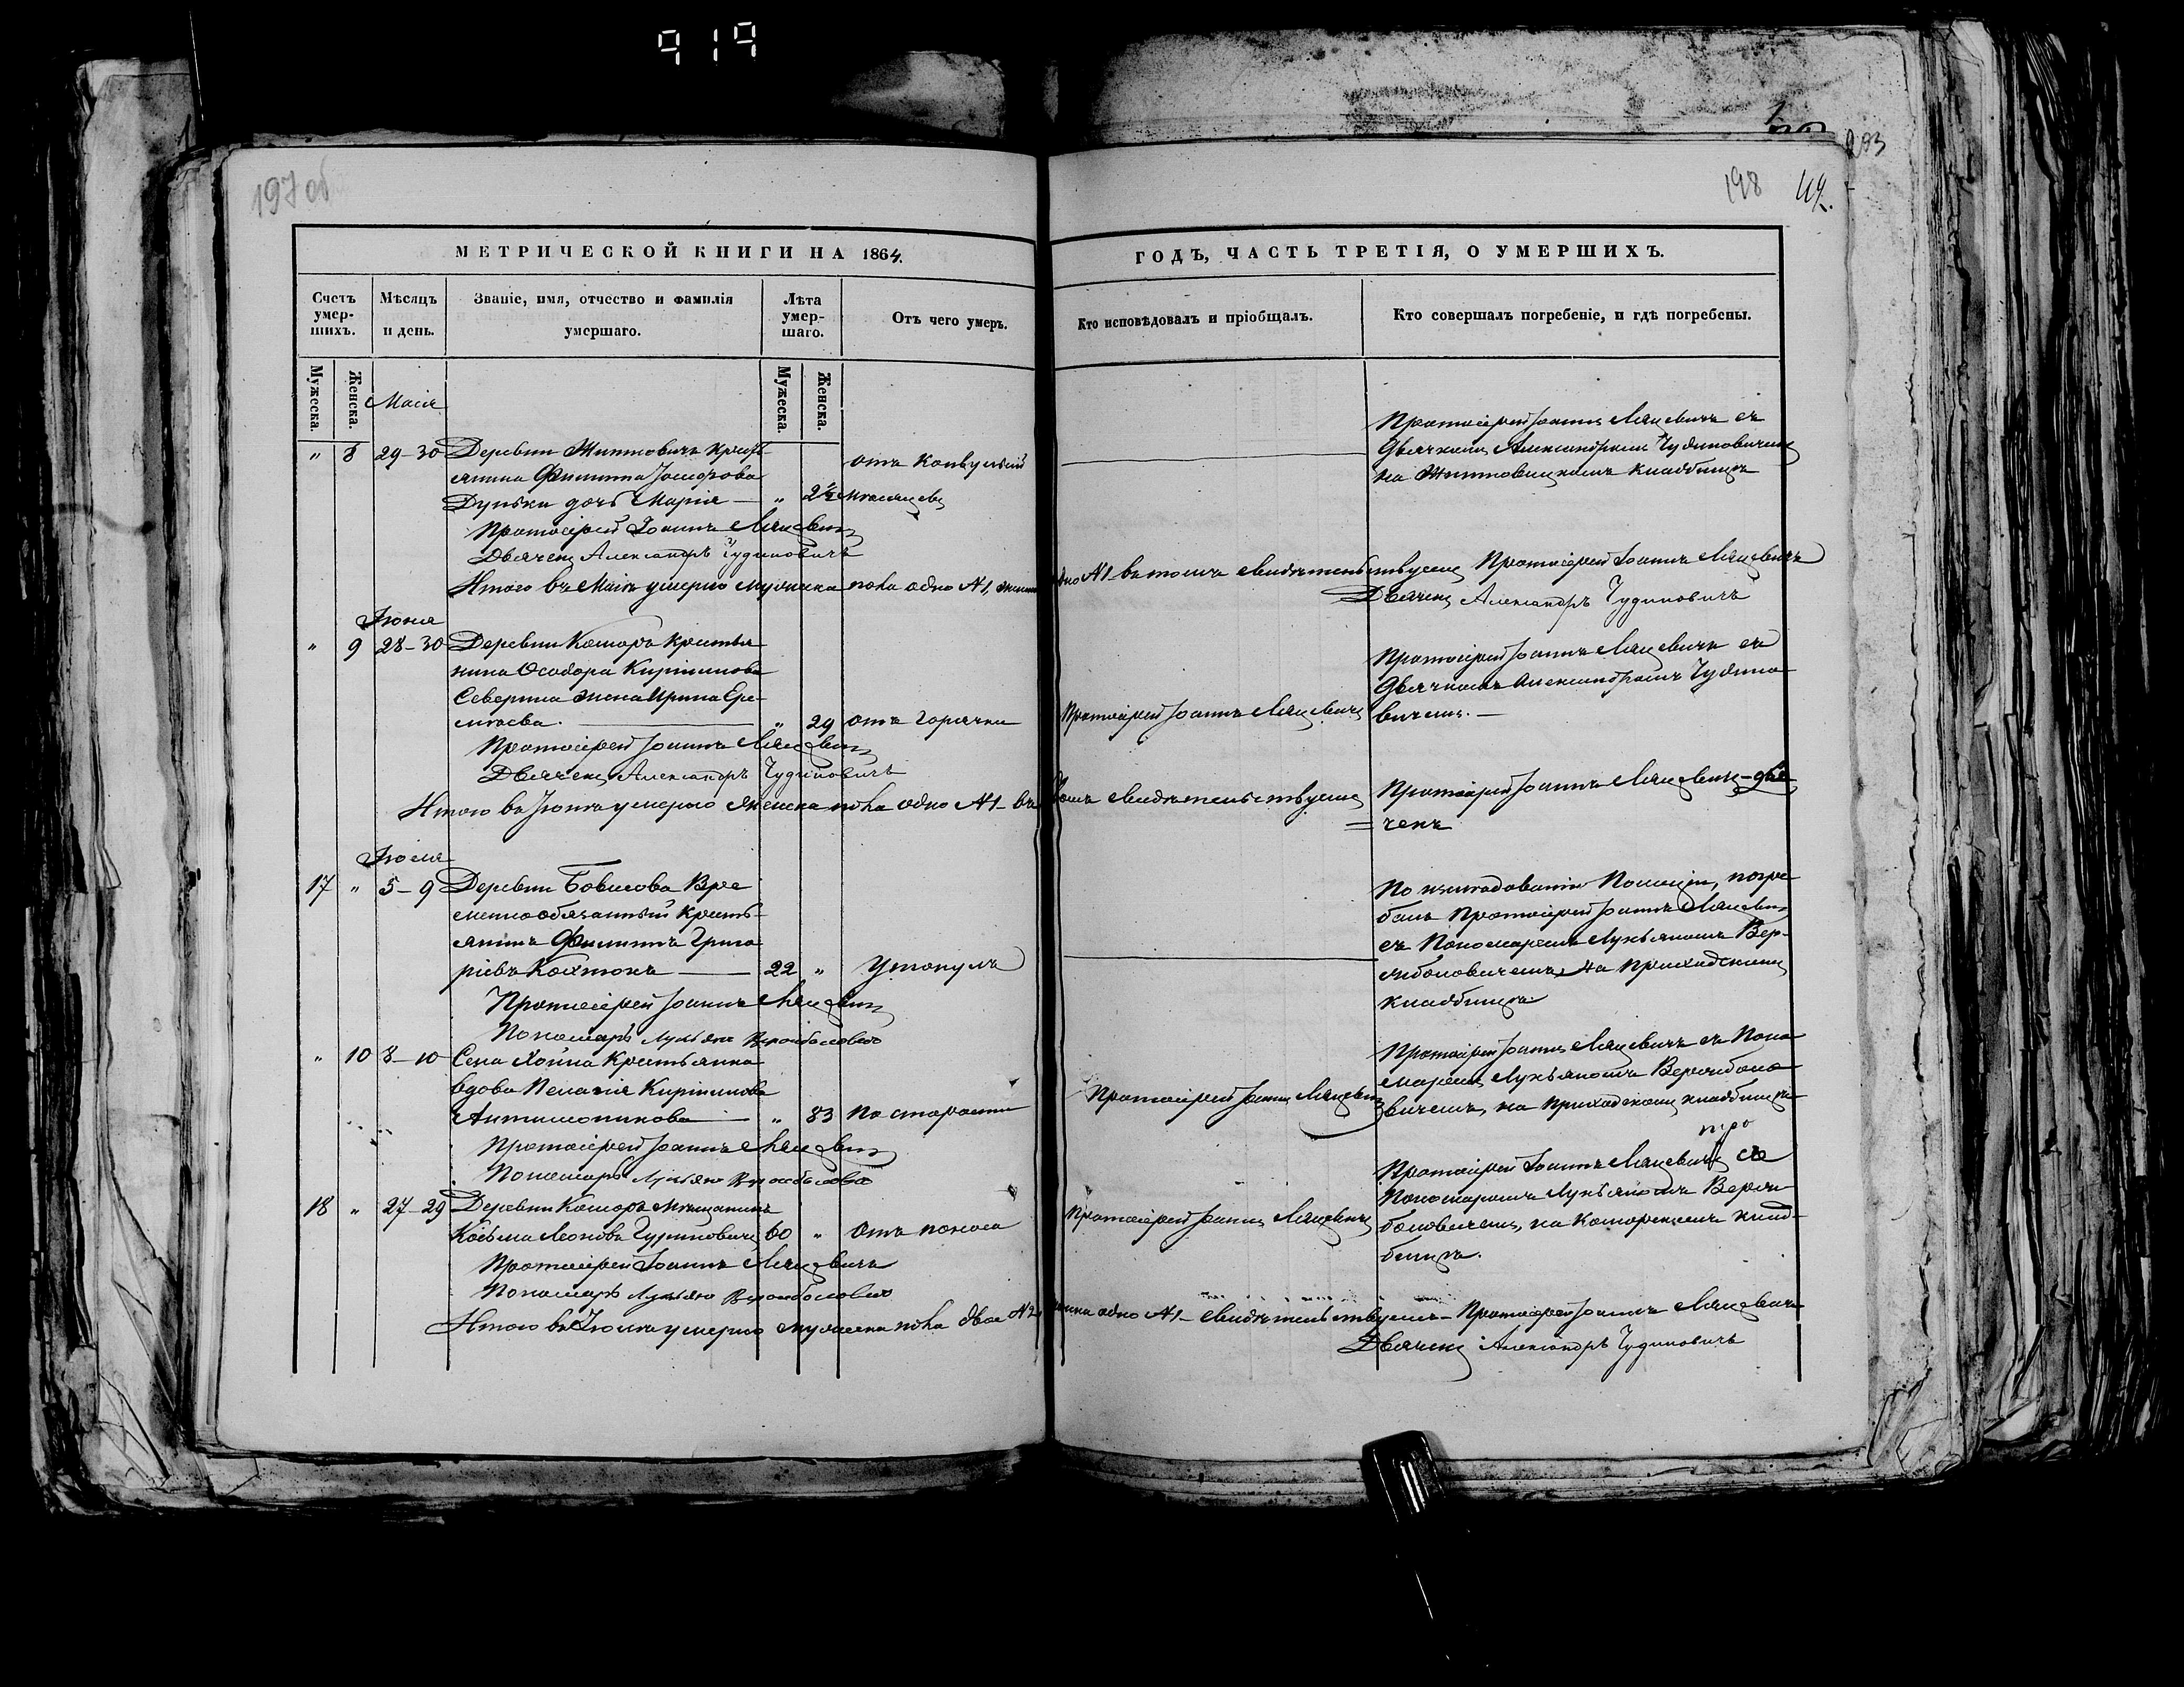 919
197 об
198
49.
203
МЕТРИЧЕСКОЙ КНИГИ НА 1864.
ГОДЪ, ЧАСТЬ ТРЕТІЯ, О УМЕРШИХЪ.
Счетъ умер-шихъ.
Мѣсяцъ и день.
Званіе, имя, отчество и фамилія умершаго.
Лѣта умер-шаго.
Отъ чего умеръ.
Кто исповѣдовалъ и пріобщалъ.
Кто совершалъ погребеніе, и гдѣ погребены.
Мужеска.
Женска.
Мужеска.
Женска.
Маія
" 8 29-30 Деревни Житковичъ крест-
янина Филиппа Іосифова
Дуньки дочь Марія — " 2½ мѣсяцевъ
отъ конвульсій
Протоіерей Іоаннъ Ляцевичъ съ
Дьячкомъ Александромъ Чудиновичемъ
на Житковицкомъ кладбищѣ
Протоіерей Іоаннъ Ляцевичъ
Дьячекъ Александръ Чудиновичъ
Итого въ Маіѣ умерло мужеска пола одно №1, женска
одно №1 въ томъ свидѣтельствуемъ Протоіерей Іоаннъ Ляцевичъ
Дьячекъ Александръ Чудиновичъ
Іюня
" 9 28-30 Деревни Коморъ крестья
нина Ѳеодора Кириллова
Северина жена Ирина Ере-
мѣева. — " 29 отъ горячки
Протоіерей Іоаннъ Ляцевичъ
Протоіерей Іоаннъ Ляцевичъ съ
Дьячкомъ Александромъ Чудино
вичемъ. —
Протоіерей Іоаннъ Ляцевичъ
Дьячекъ Александръ Чудиновичъ
Итого въ Іюнѣ умерло женска пола одно №1 - въ
томъ свидѣтельствуемъ Протоіерей Іоаннъ Ляцевичъ - дья
= чекъ
Іюля
17 " 5-9 Деревни Бовисова Вре
меннообязанный крестъ-
янинъ Филиппъ Григо
ріевъ — 22 " Утонулъ
По изслѣдованію Полиціи, погре
балъ Протоіерей Іоаннъ Ляцевичъ
съ Пономаремъ Лукьяномъ Вер-
жболовичемъ, на Приходскомъ
кладбищѣ
Протоіерей Іоаннъ Ляцевичъ
Пономарь Лукьянъ Вержболовичъ
" 10 8-10 Села крестьянка
вдова Пелагія Кириллова
— " 83 по старости
Протоіерей Іоаннъ Ляцевичъ
Протоіерей Іоаннъ Ляцевичъ съ Поно
маремъ Лукьяномъ Вержболо
вичемъ, на приходскомъ кладбищѣ
Протоіерей Іоаннъ Ляцевичъ
Пономарь Лукьянъ Вержболовичъ
18 " 27-29 Деревни Коморъ мѣщанинъ
Козьма Леоновъ 60 " отъ поноса
Протоіерей Іоаннъ Ляцевичъ
Протоіерей Іоаннъ Ляцевичъ съ
Пономаремъ Лукьяномъ Верж
боловичемъ, на Коморскомъ клад-
бищѣ.
Протоіерей Іоаннъ Ляцевичъ
Пономарь Лукьянъ Вержболовичъ
Итого въ Іюлѣ умерло мужеска пола двое №2,
женска одно №1 - свидѣтельствуемъ - Протоіерей Іоаннъ Ляцевичъ
Дьячекъ Александръ Чудиновичъ